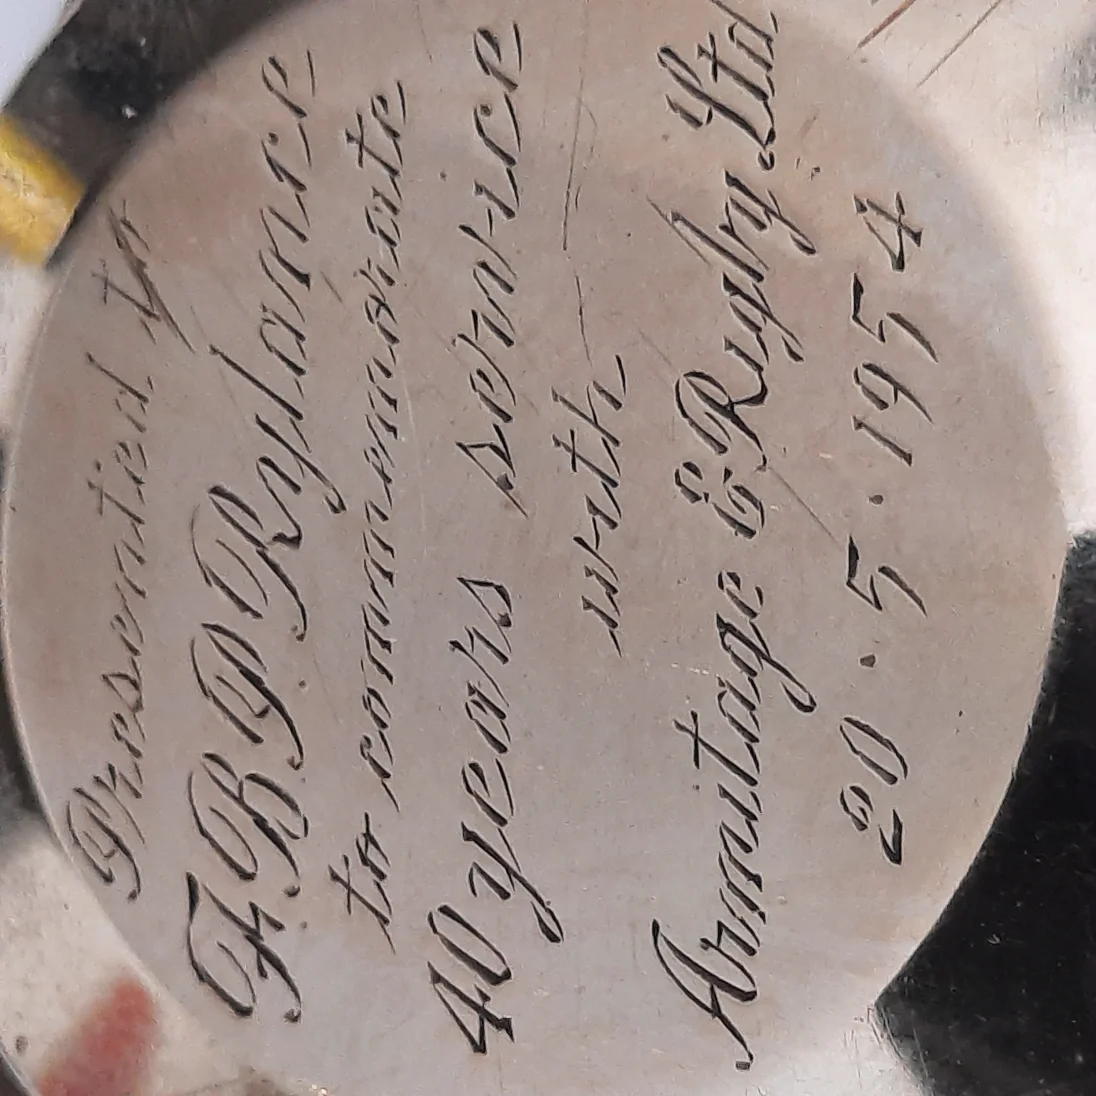 Presented to
F B P Rylance
to commemorate
40 years service
with
Armitage & Rigby Ltd
20.5.1954